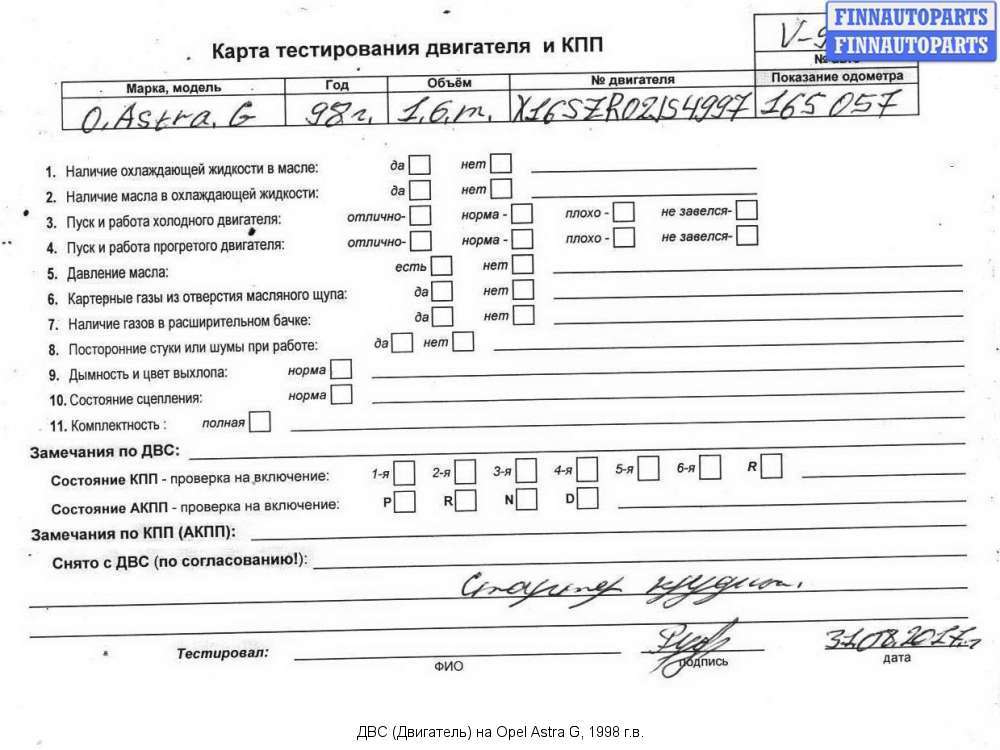 FINNAUTOPARTS
FINNAUTOPARTS
Карта тестирования двигателя и КПП
Марка, модель Год Объём № двигателя Показание одометра
O. Astra. G 98г. 1,6, т. X16SZR02JS4997 165 057
1. Наличие охлаждающей жидкости в масле: да нет
2. Наличие масла в охлаждающей жидкости: да нет
3. Пуск и работа холодного двигателя: отлично- норма - плохо - не завелся-
4. Пуск и работа прогретого двигателя: отлично- норма - плохо - не завелся-
5. Давление масла: есть нет
6. Картерные газы из отверстия масляного щупа: да нет
7. Наличие газов в расширительном бачке: да нет
8. Посторонние стуки или шумы при работе: да нет
9. Дымность и цвет выхлопа: норма
10. Состояние сцепления: норма
11. Комплектность : полная
Замечания по ДВС:
Состояние КПП - проверка на включение: 1-я 2-я 3-я 4-я 5-я 6-я R
Состояние АКПП - проверка на включение: P R N D
Замечания по КПП (АКПП):
Снято с ДВС (по согласованию!):
Стартер
Тестировал: 31.08.2017г.
ФИО подпись дата
ДВС (Двигатель) на Opel Astra G, 1998 г.в.